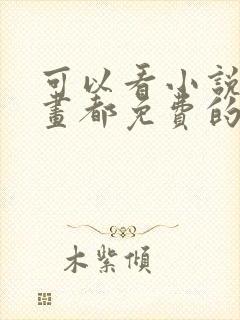 可以看小說
畫都免費的
木紫傾